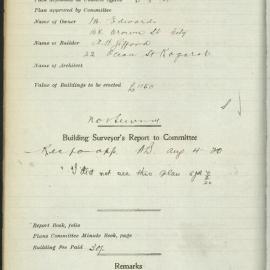 Plan approved by Committee
Name of Owner Edwards
Brown St City
Name of Builder Gifford
22 Ocean St Kogarah
Name of Architect
Value of Buildings to be erected £1160
No Sewer
Building Surveyor's Report to Committee
Rec for app. Aug 4 20
"I did not see this plan
Report Book, folio
Plans Committee Minute Book, page
Building Fee Paid 30/-
Remarks